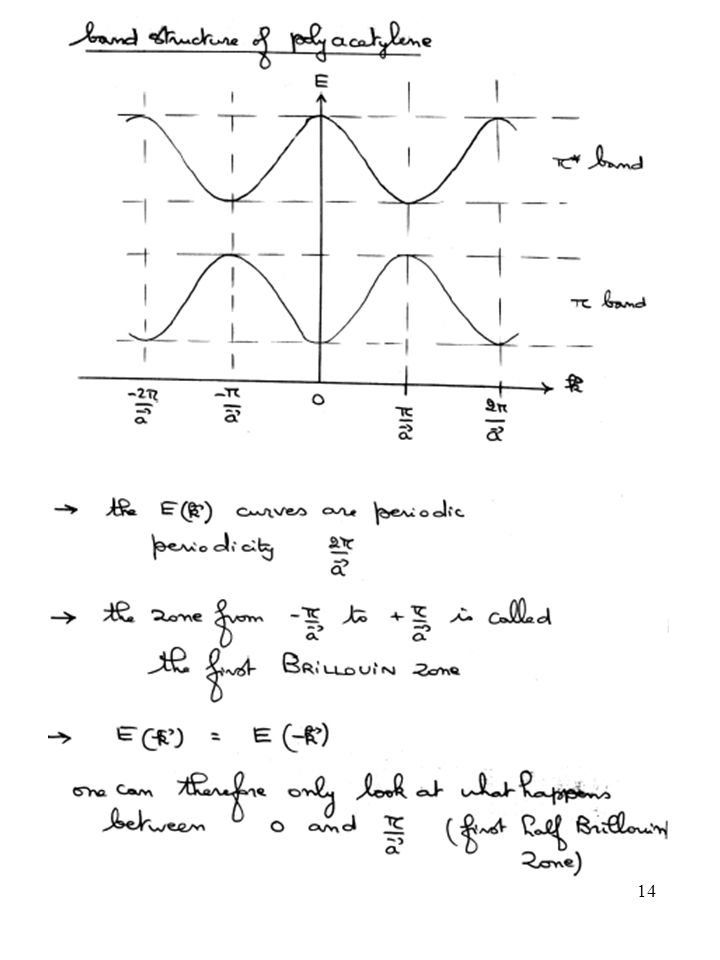 band structure of polyacetylene
E
π* band
π band
k⃗
-2π/a⃗ -π/a⃗ 0 π/a⃗ 2π/a⃗
→ the E(k⃗) curves are periodic
periodicity 2π/a⃗
→ the zone from -π/a⃗ to +π/a⃗ is called
the first BRILLOUIN zone
→ E(k⃗) = E(-k⃗)
one can therefore only look at what happens
between 0 and π/a⃗ (first half Brillouin
zone)
14